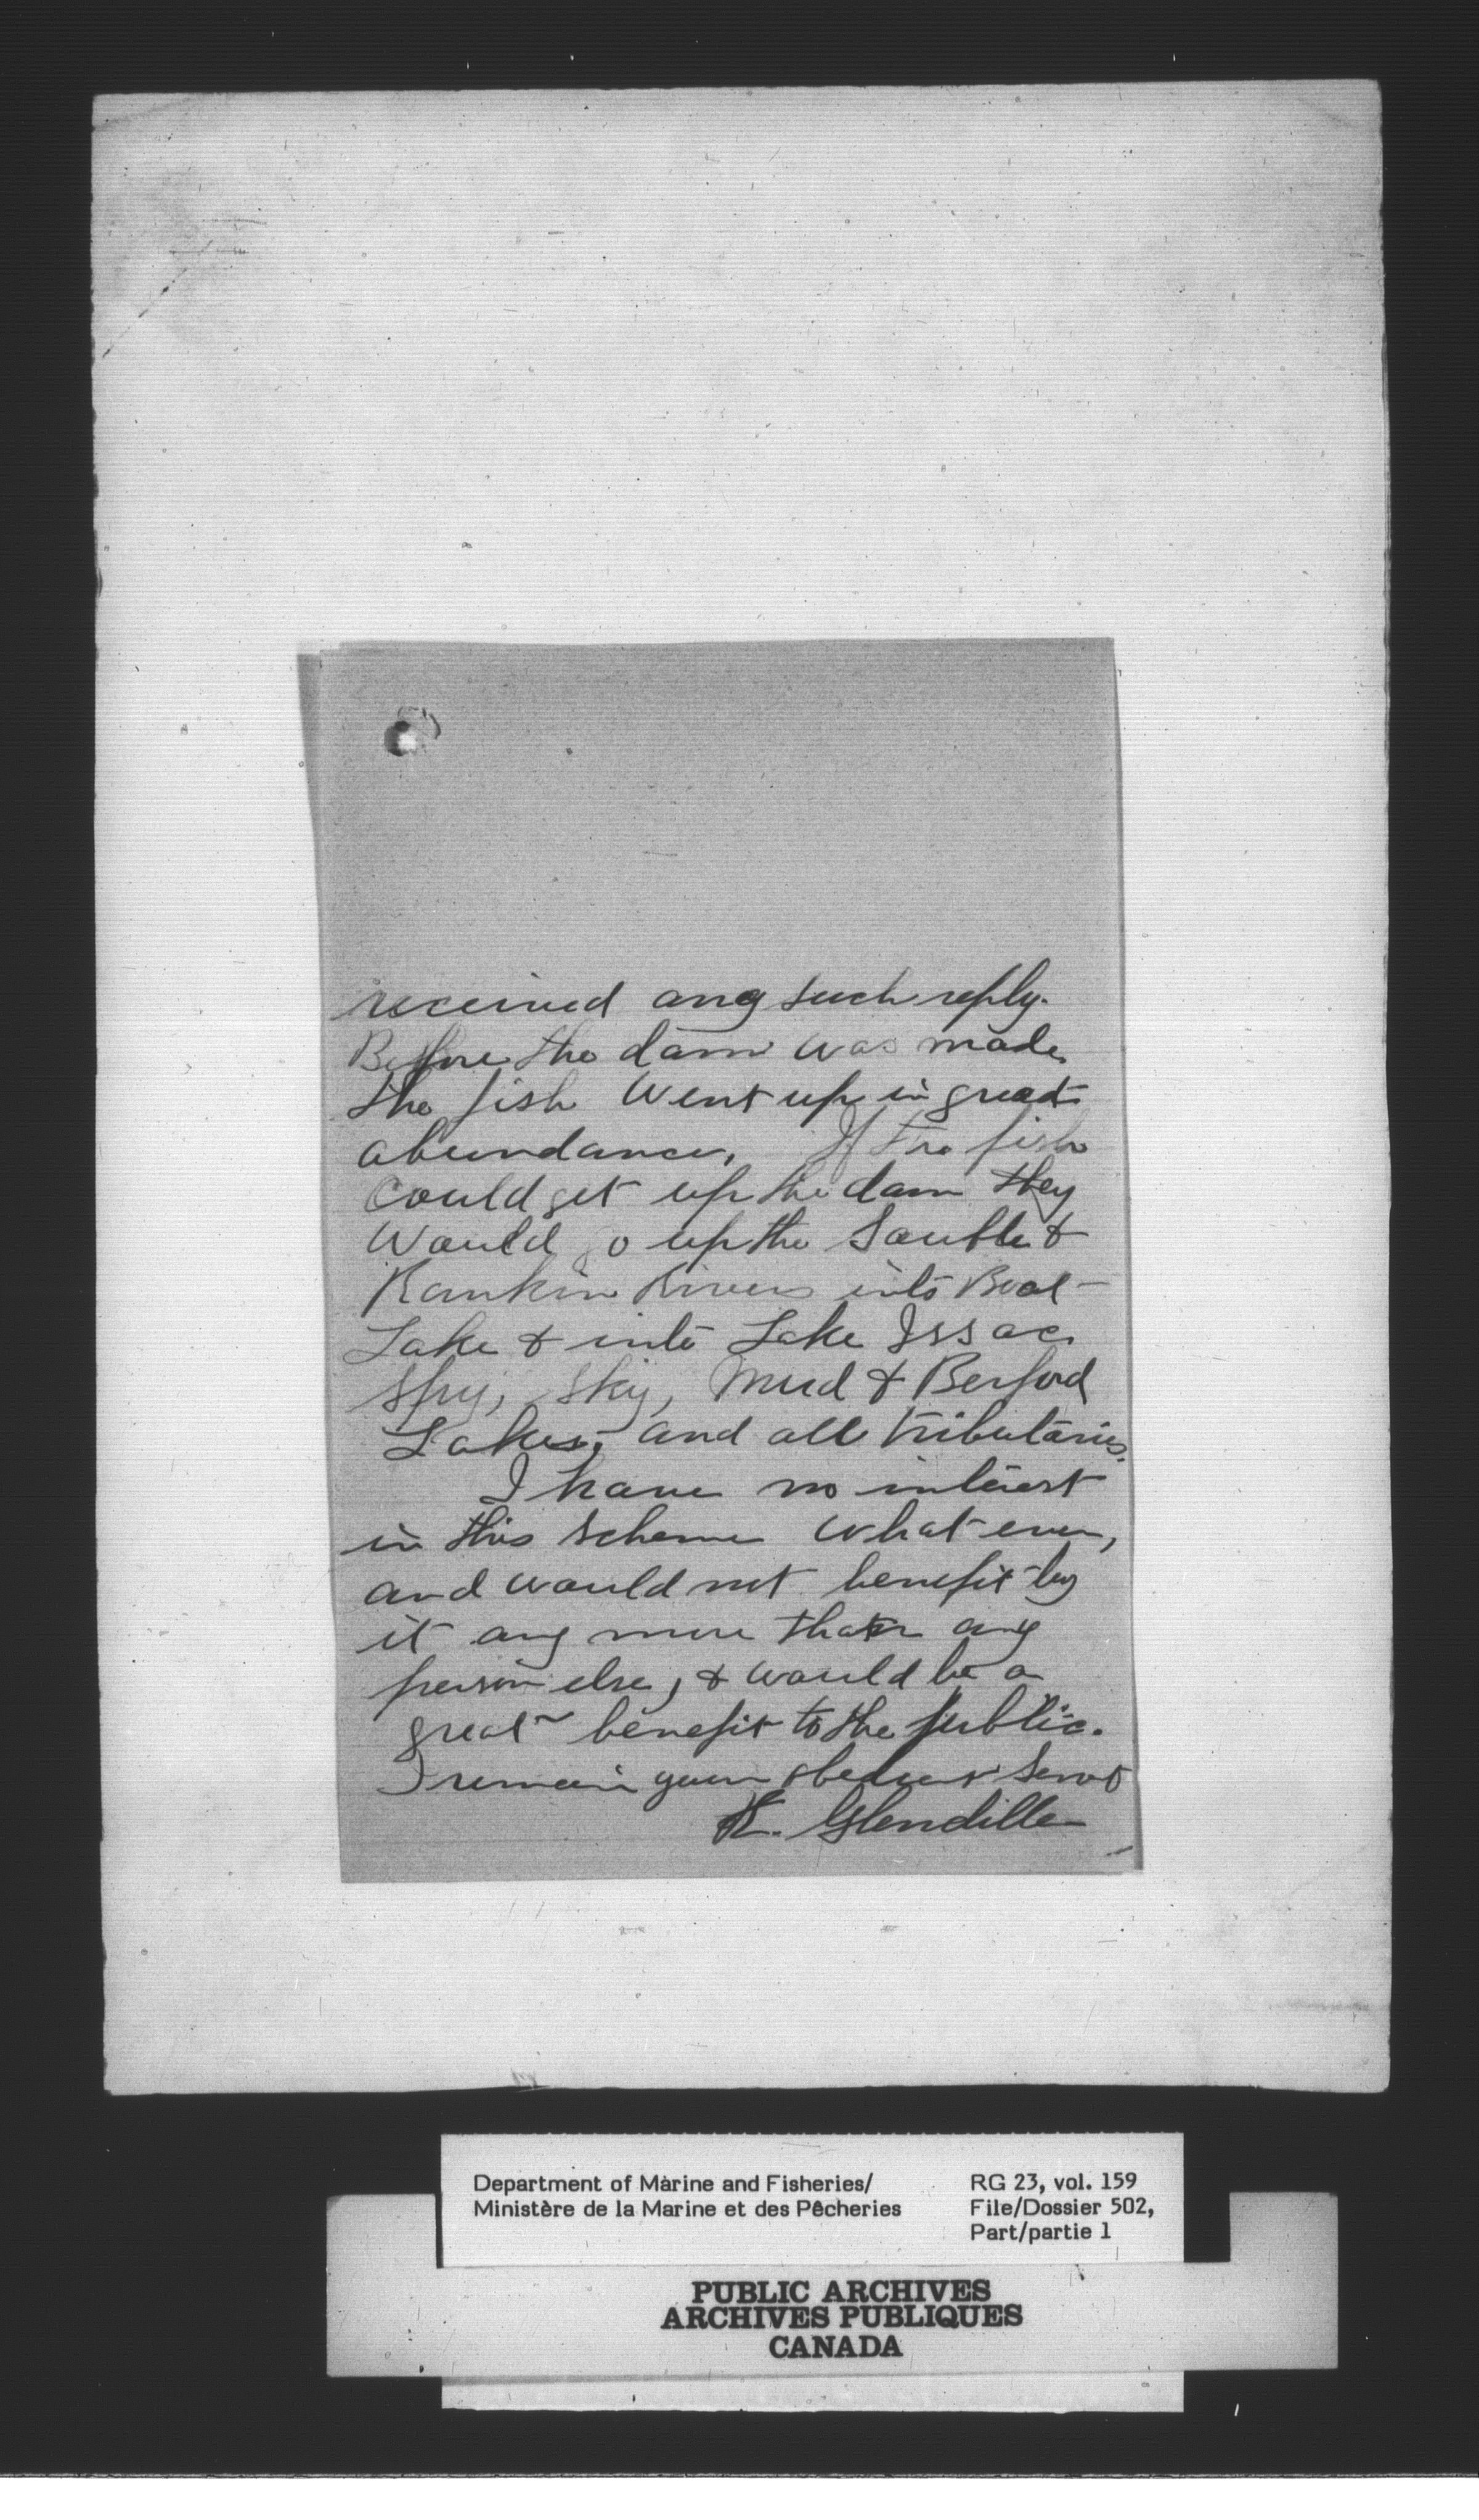 received any such reply.
Before the dam was made
the fish Went up in great
abundance, If the fish
Could get up the dam they
Would go up the Sauble &
Rankin Rivers into Boat
Lake & into Lake Issac
Spry, Sky, Mud & Berford
Lakes, and all tributaries.
I have no interest
in this scheme What ever,
and would not benefit by
it any more than any
person else, & would be a
great benefit to the public.
I remain your obedient Servt
Glendille
Department of Marine and Fisheries/
Ministère de la Marine et des Pêcheries
RG 23, vol. 159
File/Dossier 502,
Part/partie 1
PUBLIC ARCHIVES
ARCHIVES PUBLIQUES
CANADA